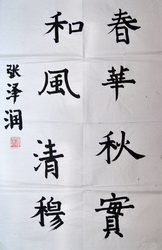 春華秋實
和風清穆
张泽润